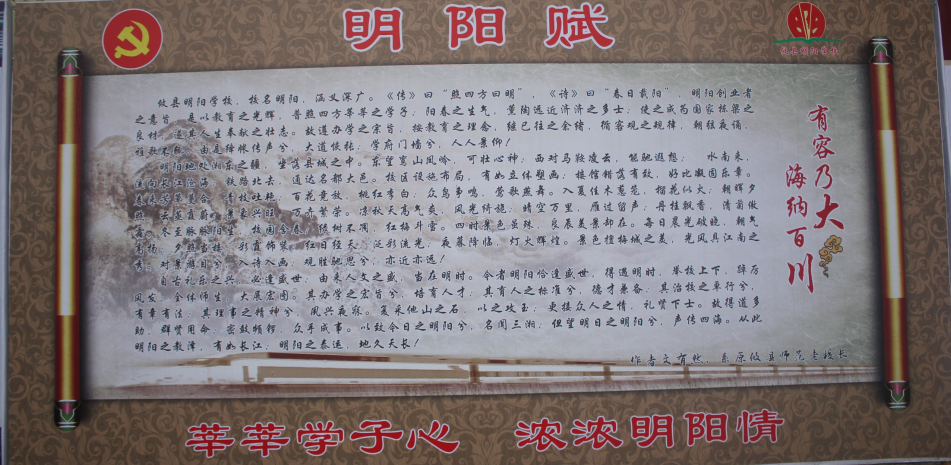 明阳赋
攸县明阳学校
攸县明阳学校，校名明阳，涵义深广。《传》曰“照四方曰明”，《诗》曰“春日载阳”，明阳创业者
之意旨，是以教育之光辉，普照四方莘莘之学子；阳春之生气，熏陶远近济济之多士，使之成为国家栋梁之
良材，遂其人生奉献之壮志。故遵办学之宗旨，按教育之理念，继已往之余绪，循客观之规律，朝弦夜诵，
雅歌不绝。由是绛帐传声兮，大道候张，学府门墙兮，人人景仰！
明阳地处湘东之疆，坐落县城之中。东望鸾山凤岭，可壮心神；西对马鞍凌云，能驰遐想；水南来，
注向长江沧海，铁路北去，通达名都大邑。校区设施布局，有如立体塑画；楼馆错落有致，好比凝固乐章。
青枝吐艳，百花竞放，桃红李白；众鸟争鸣，莺歌燕舞。入夏佳木葱茏，榴花似火；朝晖夕
景象兴旺，万卉繁荣。凉秋天高气爽，风光绮旎；晴空万里，雁过留声；丹桂飘香，清菊傲
霜。冬至脉脉阳生，校园含春，绿树不凋，红梅斗雪。四时景色虽殊，良辰美景却在。每日晨光破晓，朝气
夕照当楼，彩霞饰装，红日经天，泛彩流光，夜幕降临，灯火辉煌。景色擅梅城之美，光风具江南之
秀。对景游目兮，入诗入画，观胜驰思兮，亦近亦远！
自古礼乐之兴，必逢盛世，由来人文之盛，当在明时。今者明阳恰逢盛世，得遇明时，举校上下，踔厉
风发，全体师生，大展宏图。其办学之宏旨兮，培育人才；其育人之标准兮，德才兼备；其治校之章行兮，
有章有法；其理事之精神兮，夙兴夜寐。更采他山之石，以之攻玉；更接众人之情，礼贤下士。故得道多
助，群贤用命，密鼓频锣，众手成事。以致今日之明阳兮，名闻三湘，但望明日之明阳兮，声传四海。从此
明阳之教泽，有如长江；明阳之泰运，地久天长！
作者文有然，系原攸县师范老校长
有容乃大
海纳百川
莘莘学子心 浓浓明阳情